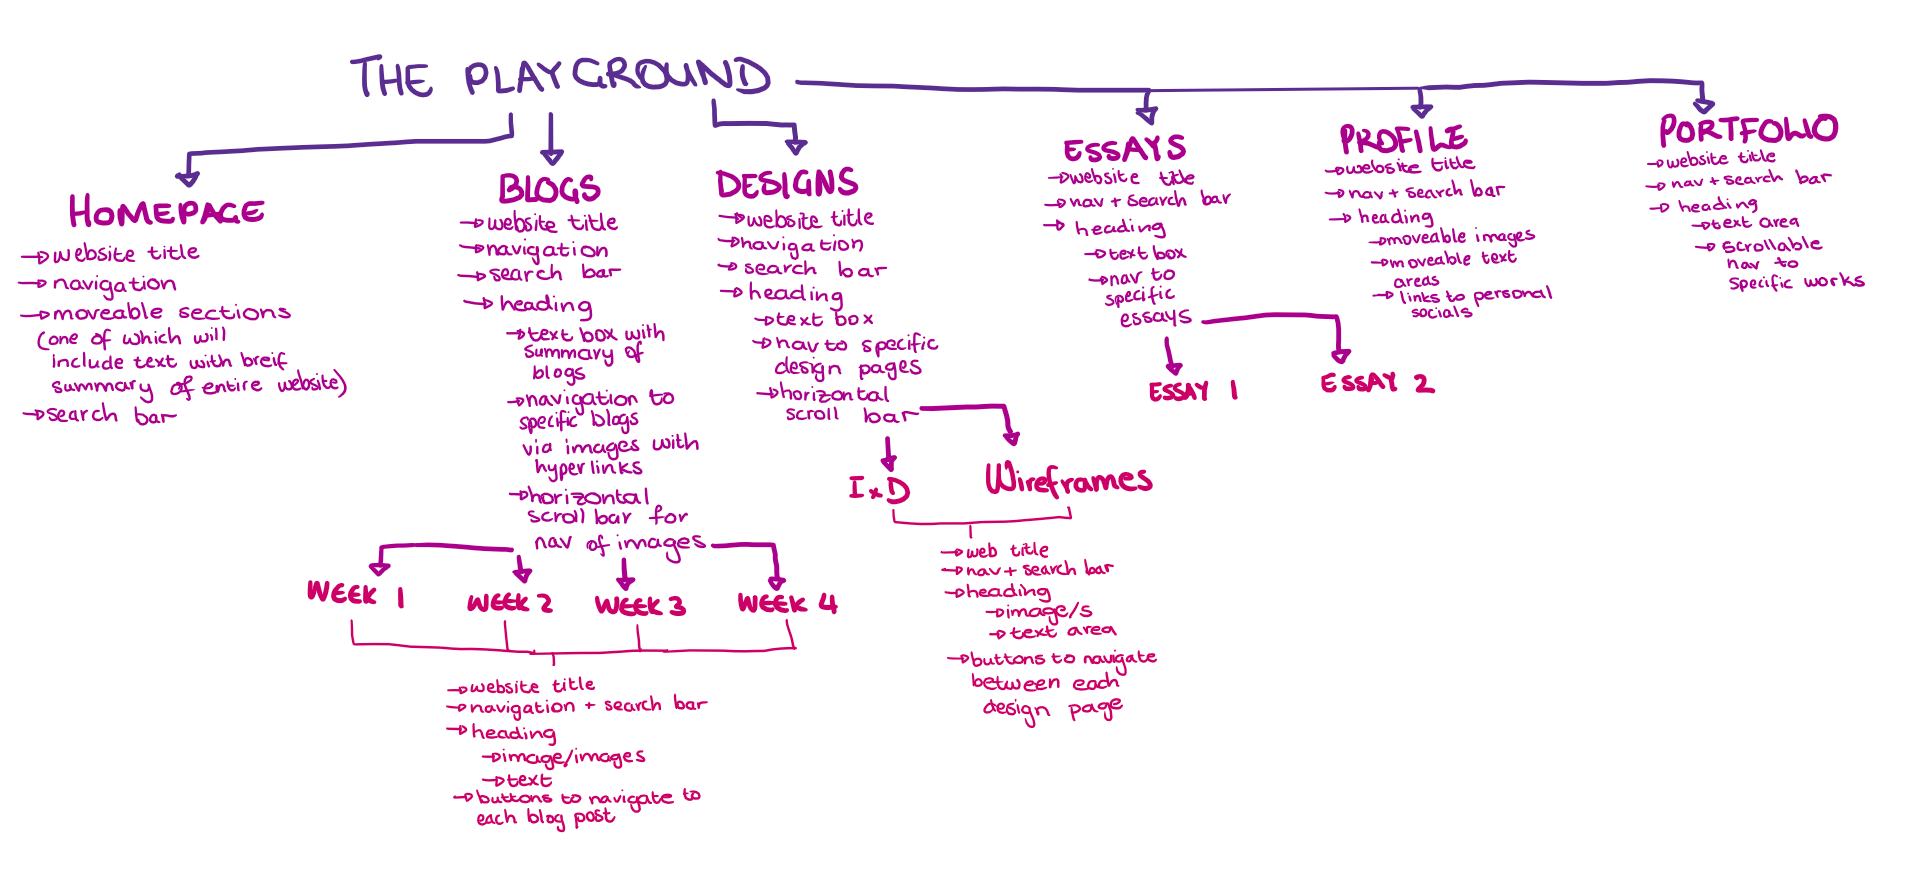 THE PLAYGROUND
HOMEPAGE
→website title
→navigation
→moveable sections
(one of which will
include text with breif
summary of entire website)
→search bar
BLOGS
→website title
→navigation
→search bar
→heading
→text box with
summary of
blogs
→navigation to
specific blogs
via images with
hyperlinks
→horizontal
scroll bar for
nav of images
WEEK 1
WEEK 2
WEEK 3
WEEK 4
→website title
→navigation + search bar
→heading
→image/images
→text
→buttons to navigate to
each blog post
DESIGNS
→website title
→navigation
→search bar
→heading
→text box
→nav to specific
design pages
→horizontal
scroll bar
IxD
Wireframes
→web title
→nav + search bar
→heading
→image/s
→text area
→buttons to navigate
between each
design page
ESSAYS
→website title
→nav + search bar
→heading
→text box
→nav to
specific
essays
ESSAY 1
ESSAY 2
PROFILE
→website title
→nav + search bar
→heading
→moveable images
→moveable text
areas
→links to personal
socials
PORTFOLIO
→website title
→nav + search bar
→heading
→text area
→scrollable
nav to
specific works